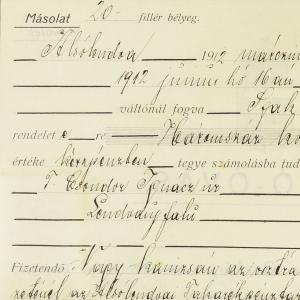 Másolat 20- fillér bélyeg.
Alsólendva 1912 márczius
1912 június hó 16 án
váltónál fogva
rendelet e re Háromszáz
értéke készpénzben tegye számolásba tud
T Csondor Ignácz úr
Lendvaújfalu
Fizetendő Nagykanizsán az osztrák
az Alsólendvai Takarékpénztár